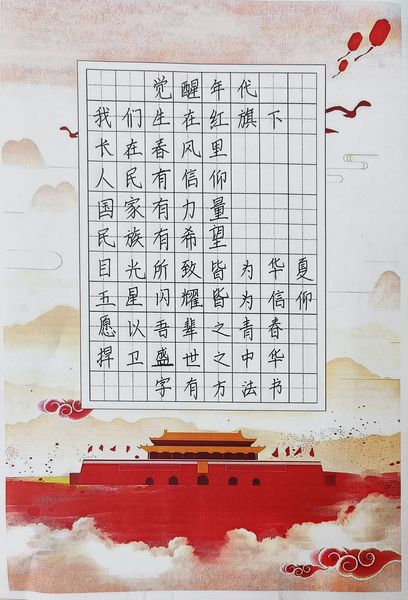 觉醒年代
我们生在红旗下
长在春风里
人民有信仰
国家有力量
民族有希望
目光所致皆为华夏
五星闪耀皆为信仰
愿以吾辈之青春
捍卫盛世之中华
字有方法书